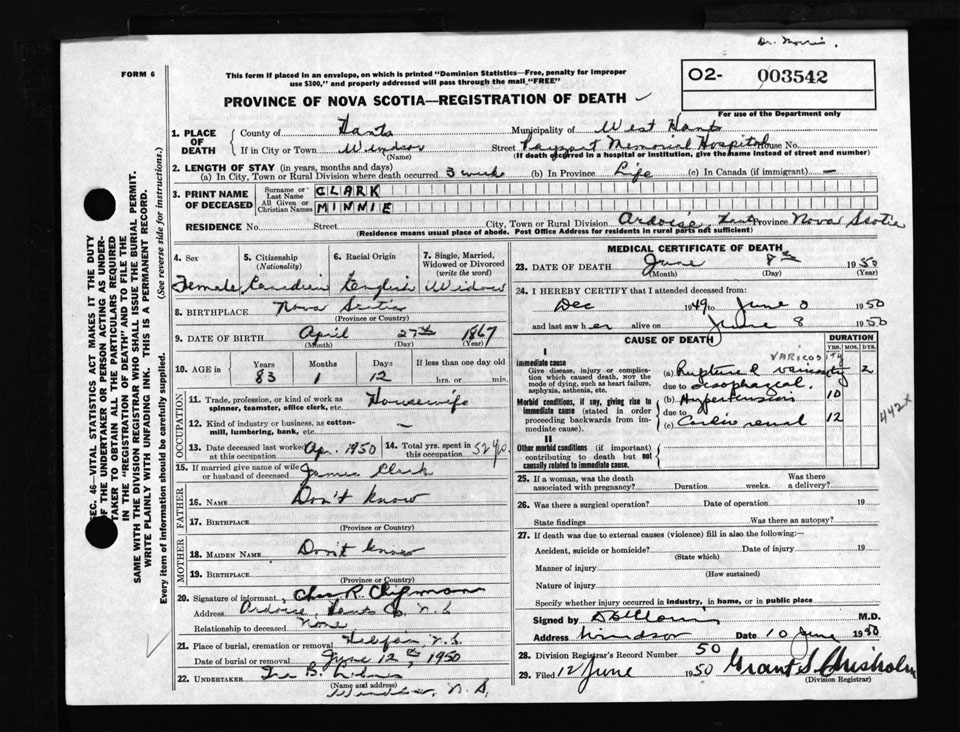 Dr. Morris.
FORM 6
This form if placed in an envelope, on which is printed "Dominion Statistics—Free, penalty for improper
use $300," and properly addressed will pass through the mail "FREE"
O2- 003542
For use of the Department only
PROVINCE OF NOVA SCOTIA—REGISTRATION OF DEATH
1. PLACE OF DEATH
County of Hants Municipality of West Hants
If in City or Town Windsor Street Payzant Memorial Hospital House No.
(Name) (If death occurred in a hospital or institution, give the name instead of street and number)
2. LENGTH OF STAY (in years, months and days)
(a) In City, Town or Rural Division where death occurred 3 week (b) In Province Life (c) In Canada (if immigrant) —
3. PRINT NAME OF DECEASED
Surname or Last Name CLARK
All Given or Christian Names MINNIE
RESIDENCE No. Street City, Town or Rural Division Ardoise, Hants Province Nova Scotia
(Residence means usual place of abode. Post Office Address for residents in rural parts not sufficient)
4. Sex
Female
5. Citizenship
(Nationality)
Canadian
6. Racial Origin
English
7. Single, Married, Widowed or Divorced
(write the word)
Widow
8. BIRTHPLACE Nova Scotia
(Province or Country)
9. DATE OF BIRTH April 27th 1867
(Month) (Day) (Year)
10. AGE in Years Months Days If less than one day old
83 1 12 hrs. or min.
OCCUPATION
11. Trade, profession, or kind of work as
spinner, teamster, office clerk, etc. Housewife
12. Kind of industry or business, as cotton-
mill, lumbering, bank, etc. —
13. Date deceased last worked at this occupation Apr. 1950
14. Total yrs. spent in this occupation
15. If married give name of wife
or husband of deceased James Clark
FATHER
16. NAME Don't know
17. BIRTHPLACE
(Province or Country)
MOTHER
18. MAIDEN NAME Don't know
19. BIRTHPLACE
(Province or Country)
20. Signature of informant, Chas R. Chipman
Address Ardoise, Hants Co. N.S
Relationship to deceased None
21. Place of burial, cremation or removal Halifax, N.S.
Date of burial or removal June 12th, 1950
22. UNDERTAKER
(Name and address)
Windsor, N.S.
MEDICAL CERTIFICATE OF DEATH
23. DATE OF DEATH June 8th 1950
(Month) (Day) (Year)
24. I HEREBY CERTIFY that I attended deceased from:
Dec 1949 to June 8 1950
and last saw her alive on June 8 1950
CAUSE OF DEATH
DURATION
YRS. MOS. DYS.
I
Immediate cause
Give disease, injury or complica-
tion which caused death, NOT the
mode of dying, such as heart failure,
asphyxia, asthenia, etc.
VARICOSITY
(a) Ruptured 2
due to oesophageal.
Morbid conditions, if any, giving rise to
immediate cause (stated in order
proceeding backwards from im-
mediate cause).
(b) Hypertension 10
due to
(c) Cardio renal 12
442X
II
Other morbid conditions (if important)
contributing to death but not
causally related to immediate cause.
25. If a woman, was the death
associated with pregnancy? Duration weeks. Was there a delivery?
26. Was there a surgical operation? Date of operation 19
State findings Was there an autopsy?
27. If death was due to external causes (violence) fill in also the following:
Accident, suicide or homicide? Date of injury 19
(State which)
Manner of injury
(How sustained)
Nature of injury
Specify whether injury occurred in industry, in home, or in public place
Signed by M.D.
Address Windsor Date 10 June 1950
28. Division Registrar's Record Number 50
29. Filed 12 June 1950 Grant S. Chisholm
(Division Registrar)
SEC. 46—VITAL STATISTICS ACT MAKES IT THE DUTY
OF THE UNDERTAKER OR PERSON ACTING AS UNDER-
TAKER TO OBTAIN ALL THE PARTICULARS REQUIRED
IN THE "REGISTRATION OF DEATH" AND TO FILE THE
SAME WITH THE DIVISION REGISTRAR WHO SHALL ISSUE THE BURIAL PERMIT.
WRITE PLAINLY WITH UNFADING INK. THIS IS A PERMANENT RECORD.
Every item of information should be carefully supplied. (See reverse side for instructions.)